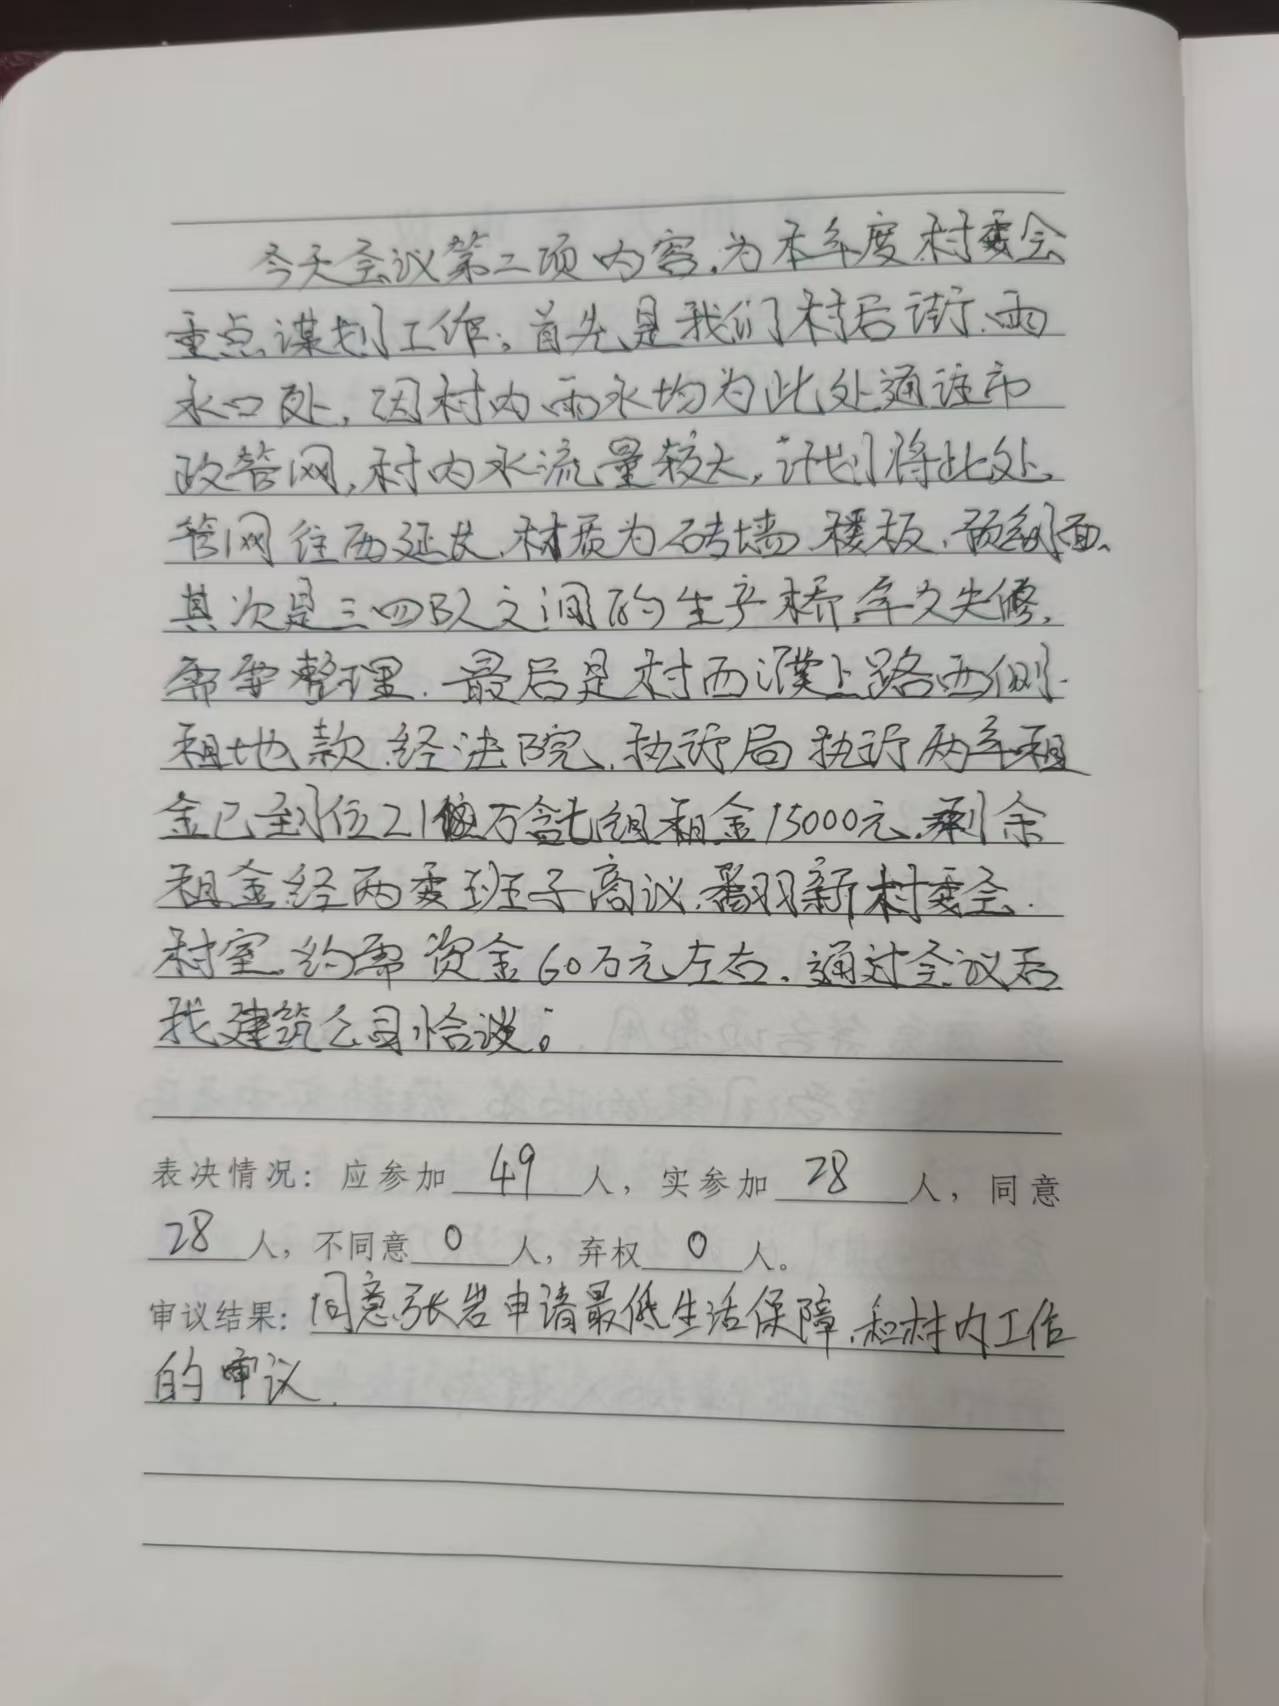 今天会议第二项内容,为本年度村委会
重点谋划工作;首先是我们村后街、雨
水口处,因村内雨水均为此处通往市
政管网,村内水流量较大,计划将此处
管网往西延长,材质为砖墙、楼板、预制面、
其次是三四队之间的生产桥,年久失修,
需要整理.最后是村西濮上路西侧
租地款,经法院,执行局执行两年租
金已到位21万含七组租金15000元,剩余
租金经两委班子商议,翻新村委会
村室,约需资金60万元左右.通过会议后
找建筑公司恰谈。
表决情况:应参加 49 人,实参加 28 人,同意
28 人,不同意 0 人,弃权 0 人。
审议结果:同意张岩申请最低生活保障,和村内工作
的审议.